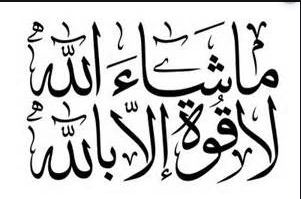 ما شاءَ الله
لا قُوة إلاّ بالله